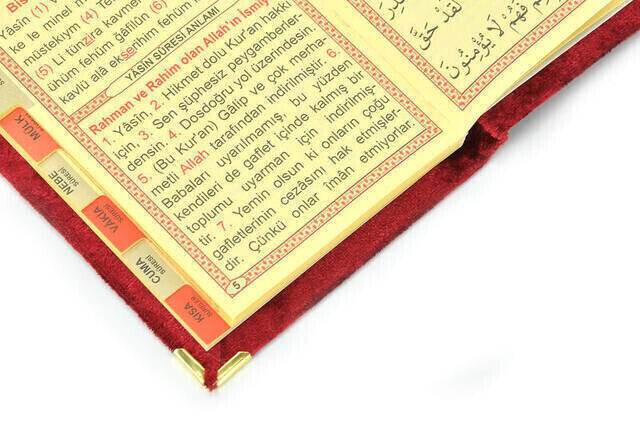 Bis
Yâsîn (1)
ke le minel
müstekıym (4) Te
(5) Li tünzira kavmen
ühüm fehüm ğâfilûn (6)
kavlü alâ ekserihim fehüm
YASİN SÛRESİ ANLAMI
Rahman ve Rahim olan Allah'ın İsmiy
1. Yâsîn, 2. Hikmet dolu Kur'an hakkı
için, 3. Sen şüphesiz peygamberler-
densin. 4. Dosdoğru yol üzerindesin.
5. (Bu Kur'an) Gâlip ve çok merha-
metli Allah tarafından indirilmiştir. 6.
Babaları uyarılmamış, bu yüzden
kendileri de gaflet içinde kalmış bir
toplumu uyarman için indirilmiş-
tir. 7. Yemin olsun ki onların çoğu
gafletlerinin cezâsını hak etmişler-
dir. Çünkü onlar îmân etmiyorlar.
5
لَقَدْ حَقَّ
فَهُمْ لَا يُؤْمِنُونَ
MÜLK
NEBE SÛRESİ
VÂKIA SÛRESİ
CUMA SÛRESİ
KISA SÛRELER